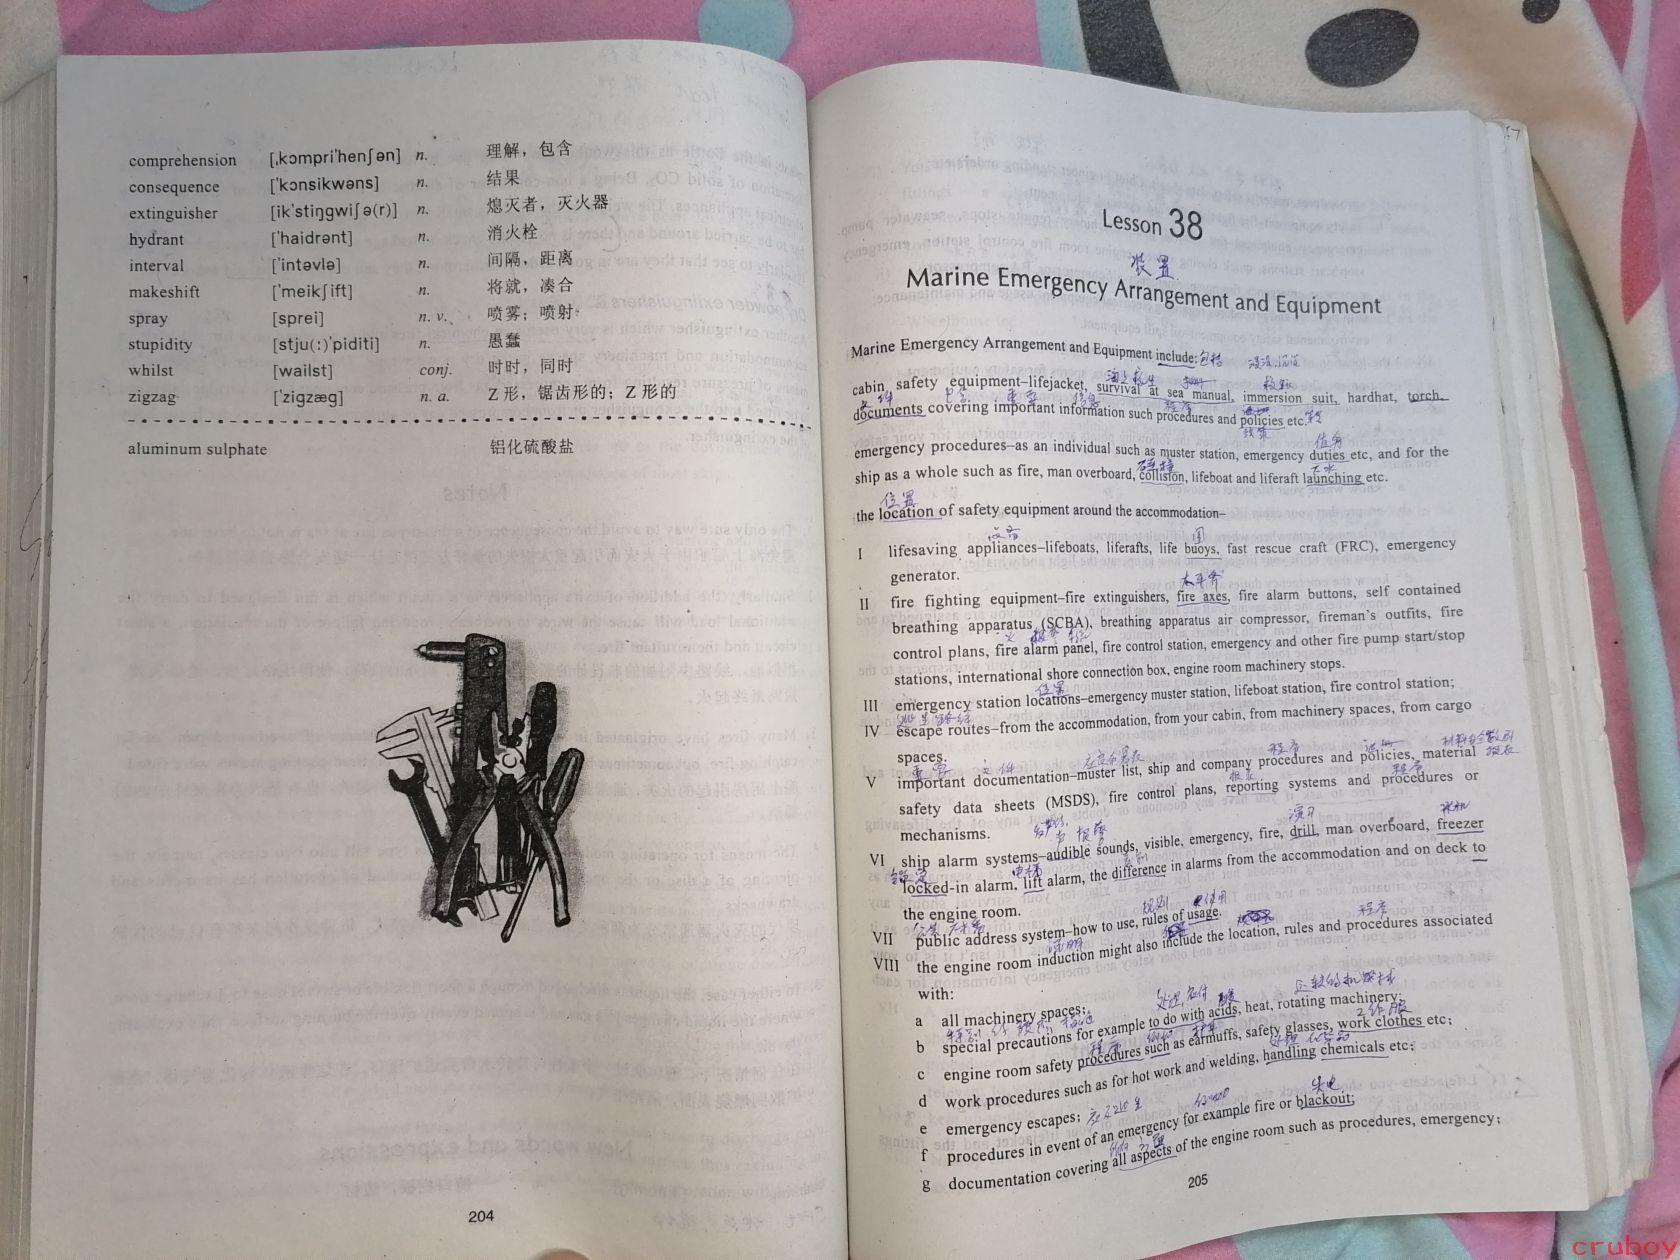 comprehension [ˌkɔmpriˈhenʃən] n. 理解，包含
consequence [ˈkɔnsikwəns] n. 结果
extinguisher [ikˈstiŋgwiʃə(r)] n. 熄灭者，灭火器
hydrant [ˈhaidrənt] n. 消火栓
interval [ˈintəvlə] n. 间隔，距离
makeshift [ˈmeikʃift] n. 将就，凑合
spray [sprei] n. v. 喷雾；喷射
stupidity [stju(ː)ˈpiditi] n. 愚蠢
whilst [wailst] conj. 时时，同时
zigzag [ˈzigzæg] n. a. Z 形，锯齿形的；Z 形的
aluminum sulphate 铝化硫酸盐
204
Lesson 38
装置
Marine Emergency Arrangement and Equipment
Marine Emergency Arrangement and Equipment include: 包括
cabin, safety equipment–lifejacket, survival at sea manual, immersion suit, hardhat, torch.
documents covering important information such procedures and policies etc.
emergency procedures–as an individual such as muster station, emergency duties etc, and for the
ship as a whole such as fire, man overboard, collision, lifeboat and liferaft launching etc.
位置
the location of safety equipment around the accommodation–
设备
I lifesaving appliances–lifeboats, liferafts, life buoys, fast rescue craft (FRC), emergency
generator.
太平斧
II fire fighting equipment–fire extinguishers, fire axes, fire alarm buttons, self contained
breathing apparatus (SCBA), breathing apparatus air compressor, fireman's outfits, fire
control plans, fire alarm panel, fire control station, emergency and other fire pump start/stop
stations, international shore connection box, engine room machinery stops.
位置
III emergency station locations–emergency muster station, lifeboat station, fire control station;
逃生路线
IV escape routes–from the accommodation, from your cabin, from machinery spaces, from cargo
spaces.
重要 文件 应变部署表 程序
V important documentation–muster list, ship and company procedures and policies, material
safety data sheets (MSDS), fire control plans, reporting systems and procedures or
mechanisms.
演习
VI ship alarm systems–audible sounds, visible, emergency, fire, drill, man overboard, freezer
锁定 电梯 差别
locked-in alarm, lift alarm, the difference in alarms from the accommodation and on deck to
the engine room.
规则 使用
VII public address system–how to use, rules of usage.
程序
VIII the engine room induction might also include the location, rules and procedures associated
with:
a all machinery spaces;
b special precautions for example to do with acids, heat, rotating machinery;
工作服
c engine room safety procedures such as earmuffs, safety glasses, work clothes etc;
处理 化学品
d work procedures such as for hot work and welding, handling chemicals etc;
e emergency escapes;
失电
f procedures in event of an emergency for example fire or blackout;
g documentation covering all aspects of the engine room such as procedures, emergency;
205
cruboy